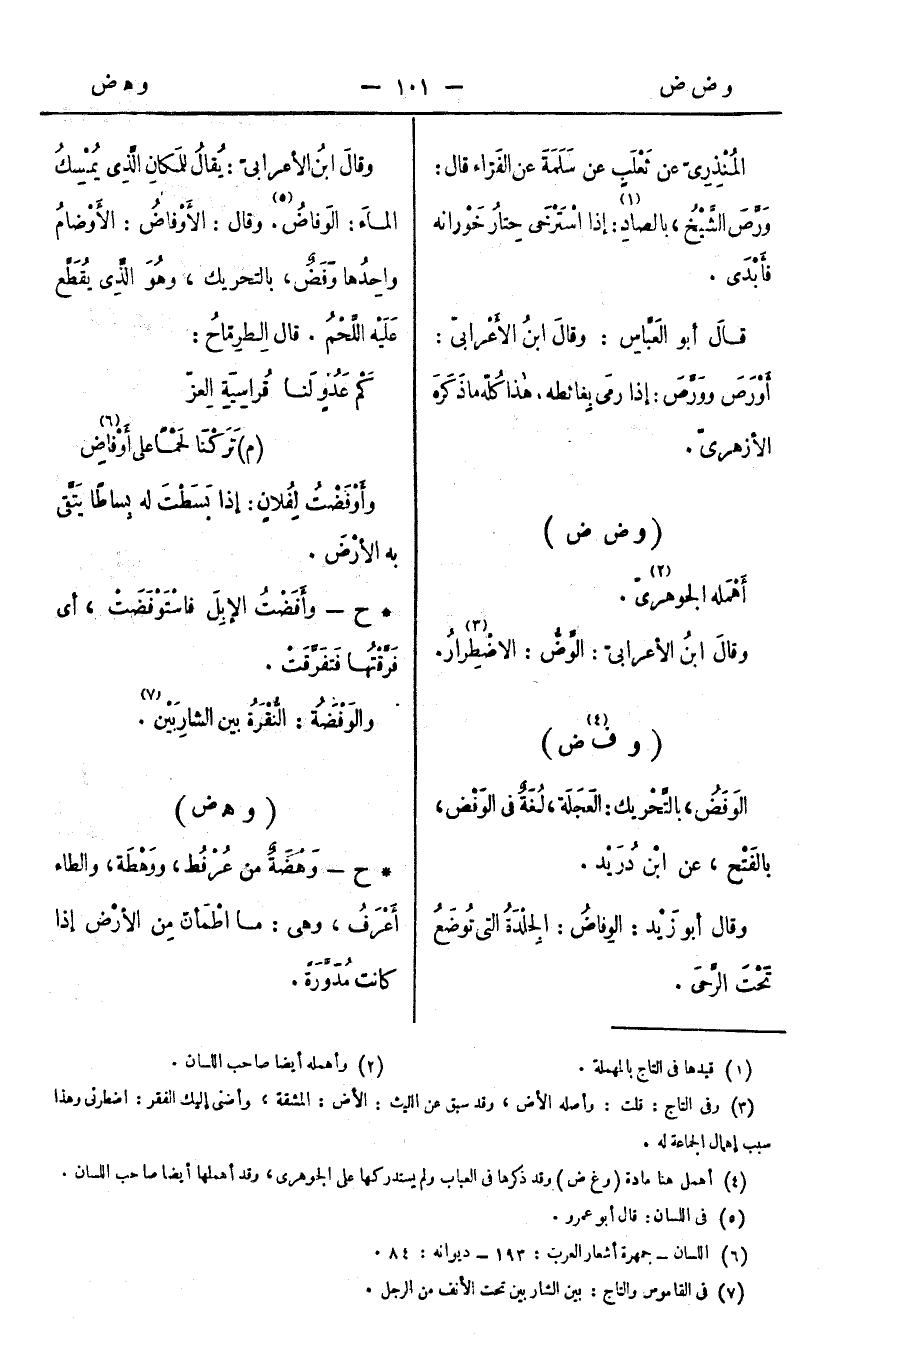 و ض ض — ١٠١ — و ه ض
المُنْذِرِىّ عن ثَعْلَبٍ عن سَلَمَةَ عن الفَرّاء قال :
وَرَّصَ الشَّيْخُ ، بالصادِ (١) : إذا اسْتَرْخَى حِتارُ خَوْرانه
فأَبْدَى .
قـالَ أبو العَبَّاسِ : وقالَ ابنُ الأَعْرابىّ :
أَوْرَصَ ووَرَّصَ : إذا رمَى بِغائطه . هٰذا كُلّه ما ذَكَرَه
الأزهرىّ .
( و ض ض )
أَهْمَله الجوهرىّ (٢) .
وقالَ ابنُ الأعرابىّ : الوَّضُّ : الاضْطِرارُ (٣) .
( و ف ض ) (٤)
الوَفَضُ ، بالتَّحْرِيك : العَجَلَة ، لُغَةٌ فى الوَفْض ،
بالفَتْح ، عن ابْن دُرَيْد .
وقال أبو زَيْد : الوِفاضُ : الجِلْدَةُ التى تُوضَعُ
تَحْتَ الرَّحَى .
وقالَ ابنُ الأعرابىّ : يُقالُ للمَكانِ الَّذِى يُمْسِكُ
المـاءَ : الوَفاضُ (٥) . وقال : الأَوْفاضُ : الأَوْضامُ
واحِدُها وَفَضٌ ، بالتحريك ، وهُوَ الَّذِى يُقَطَّع
عَلَيْه اللَّحْمُ . قال الطِرِمّاحُ :
كَمْ عَدُوٍّ لَنـا قُراسِيَةِ العِزّ
(م) تَرَكْنَا لَحْمًا على أَوْفاضِ (٦)
وأَوْفَضْتُ لِفُلانٍ : إذا بَسَطْتَ له بِساطًا يَتَّقِى
به الأرْضَ .
* ح — وأَفَضْتُ الإبِلَ فاسْتَوْفَضَتْ ، أى
فَرَّقْتُهـا فَتَفَرَّقَتْ .
والوَفْضَةُ : النُّقْرَةُ بين الشارِبَيْنِ (٧) .
( و ه ض )
* ح — وَهْضَةٌ من عُرْفُط ، ووَهْطَة ، والطاء
أَعْرَفُ ، وهى : مـا اطْمَأنّ مِن الأرْض إذا
كانت مُدَوَّرَةً .
(١) قيدها فى التاج بالمهملة .
(٢) وأهمله أيضا صاحب اللسان .
(٣) وفى التاج : قلت : وأصله الأض ، وقد سبق عن الليث : الأض : المشقة ، وأضنى إليك الفقر : اضطرنى وهذا
سبب إهمال الجماعة له .
(٤) أهمل هنا مادة (وغ ض) وقد ذكرها فى العباب ولم يستدركها على الجوهرى ، وقد أهملها أيضا صاحب اللسان .
(٥) فى اللسان : قال أبو عمرو .
(٦) اللسان – جمهرة أشعار العرب : ١٩٣ – ديوانه : ٨٤ .
(٧) فى القاموس والتاج : بين الشاربين تحت الأنف من الرجل .